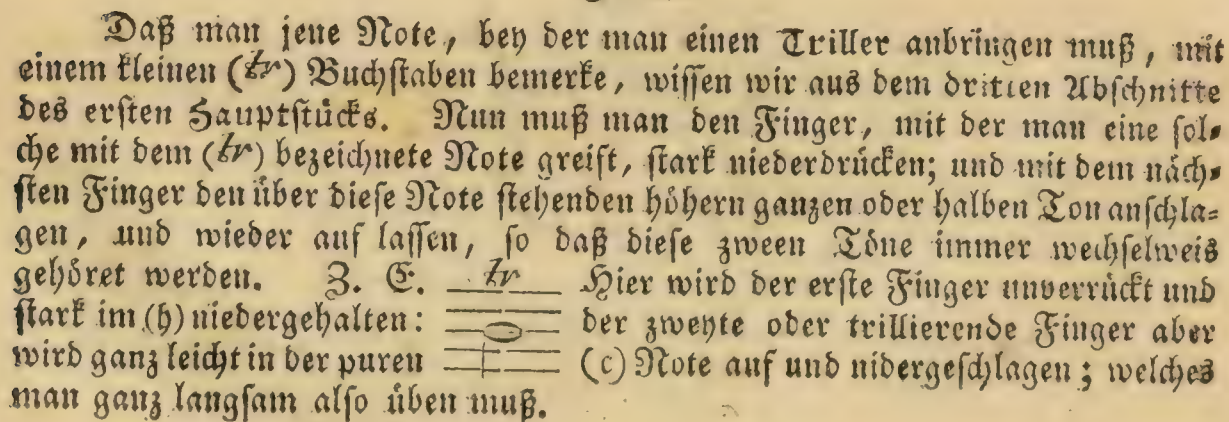 Daß man jene Note, bey der man einen Triller anbringen muß, mit
einem kleinen (tr) Buchstaben bemerke, wissen wir aus dem dritten Abschnitte
des ersten Hauptstücks. Nun muß man den Finger, mit der man eine sol-
che mit dem (tr) bezeichnete Note greift, stark niederdrücken; und mit dem näch-
sten Finger den über diese Note stehenden höhern ganzen oder halben Ton anschla-
gen, und wieder auf lassen, so daß diese zween Töne immer wechselweis
gehöret werden. Z. E. tr Hier wird der erste Finger unverrückt und
stark im (h) niedergehalten: der zweyte oder trillierende Finger aber
wird ganz leicht in der puren (c) Note auf und nidergeschlagen; welches
man ganz langsam also üben muß.